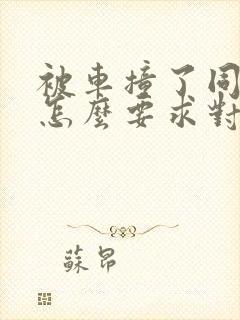 被車撞了同
怎麼要求對
蘇昂